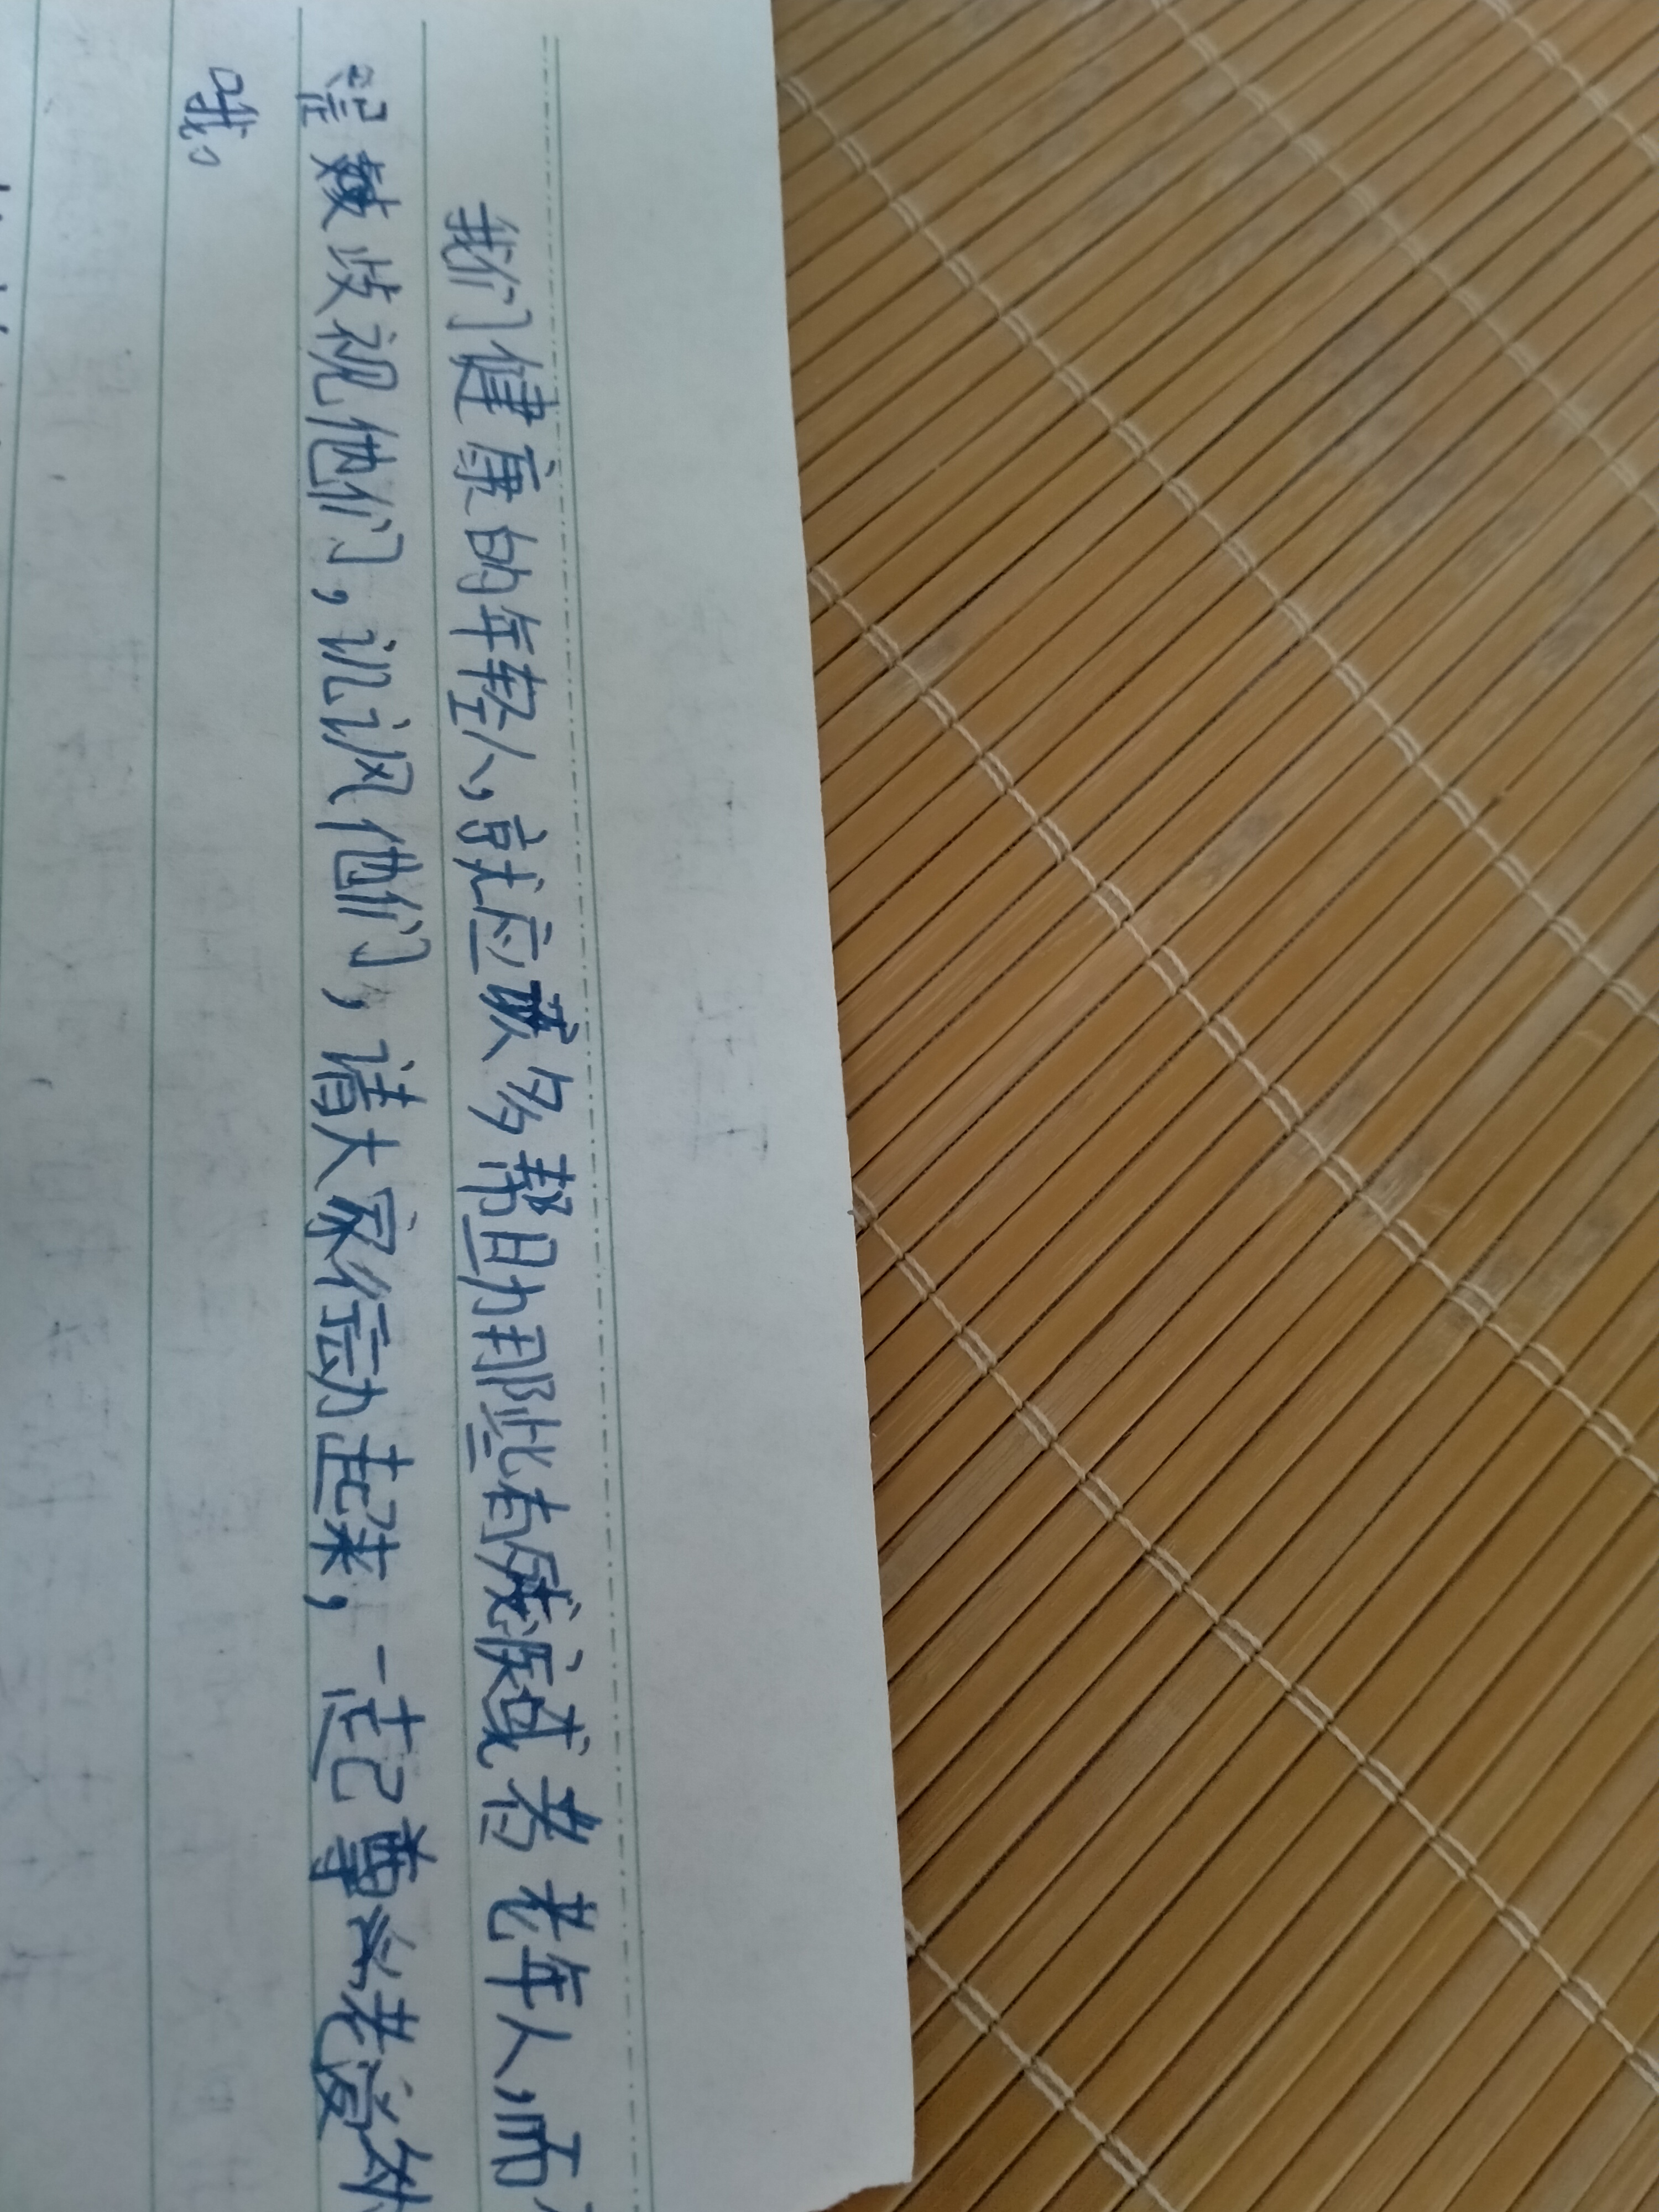 我们健康的年轻人,就应该多帮助那些有残疾或者老年人,而
是歧视他们,讥讽他们,请大家行动起来,一起尊老爱
哦。